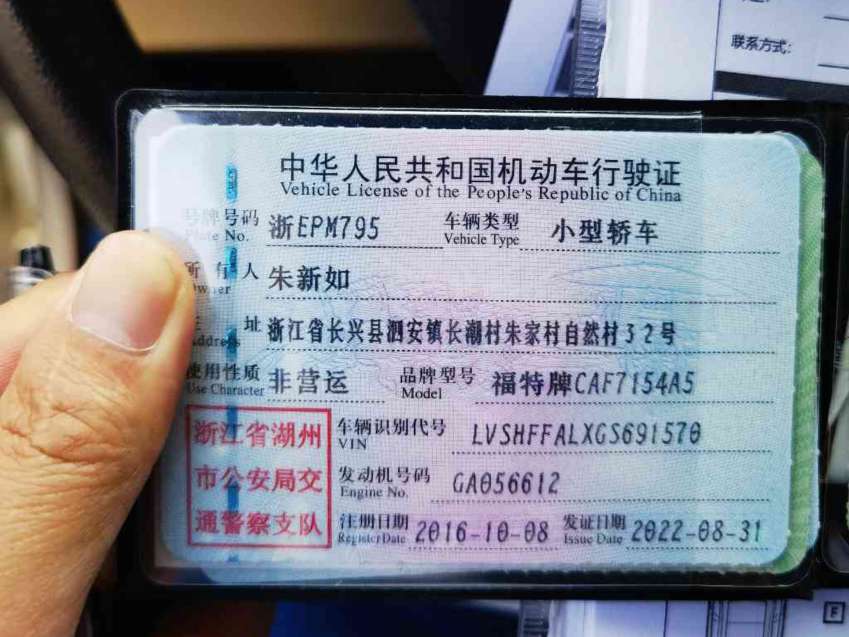 联系方式:
中华人民共和国机动车行驶证
Vehicle License of the People's Republic of China
号牌号码 浙EPM795 车辆类型 小型轿车
Plate No. Vehicle Type
所有人 朱新如
Owner
住址 浙江省长兴县泗安镇长潮村朱家村自然村32号
Address
使用性质 非营运 品牌型号 福特牌CAF7154A5
Use Character Model
浙江省湖州 车辆识别代号 LVSHFFALXGS691570
VIN
市公安局交 发动机号码 GA056612
Engine No.
通警察支队 注册日期 2016-10-08 发证日期 2022-08-31
Register Date Issue Date
F